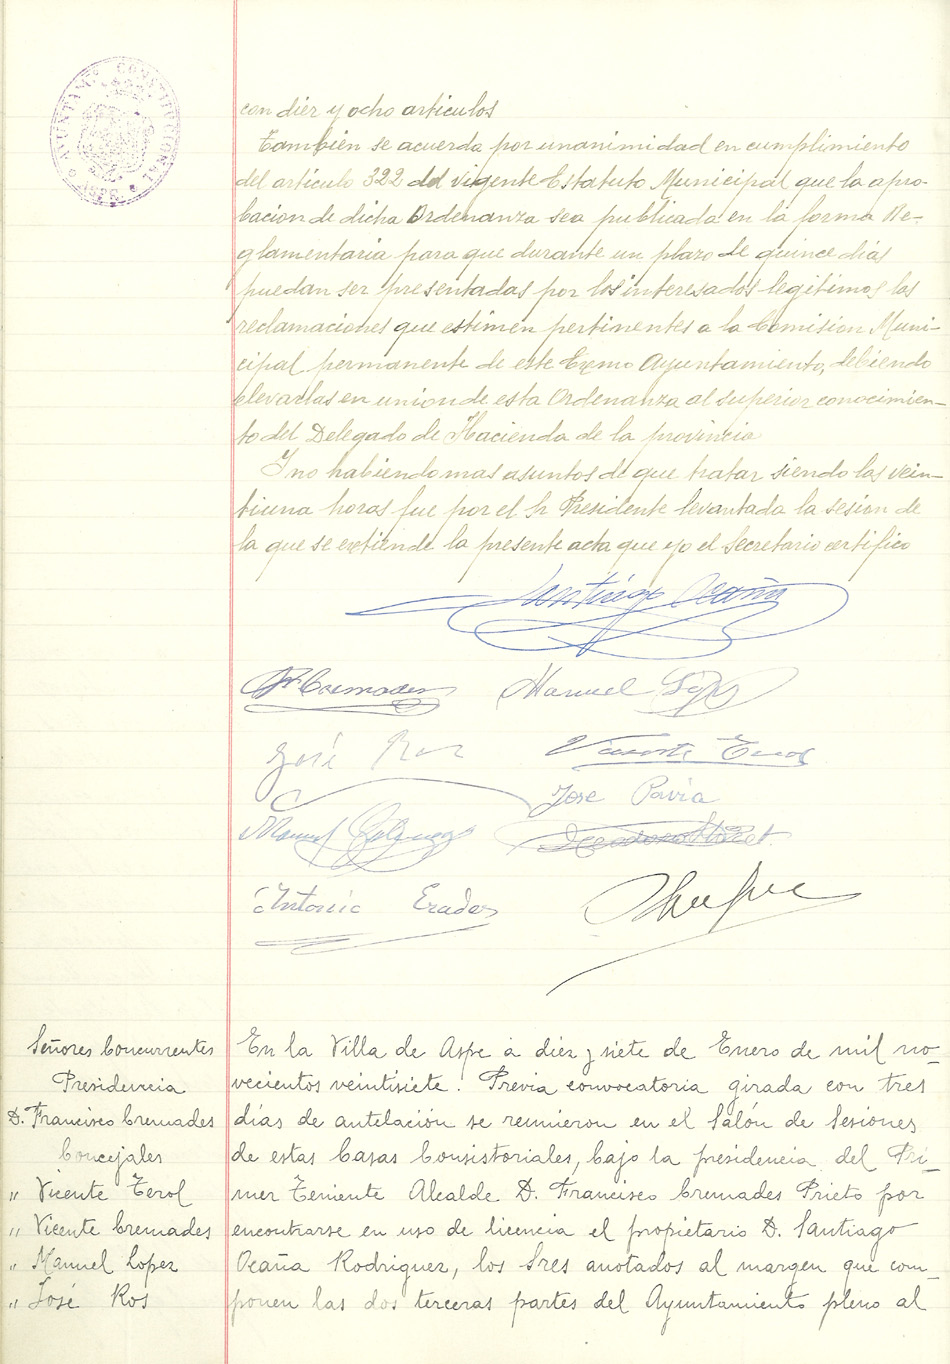 AYUNTAMº CONSTITUCIONAL
con diez y ocho articulos
Tambien se acuerda por unanimidad en cumplimiento
del articulo 322 del vigente Estatuto Municipal que la apro-
bacion de dicha Ordenanza sea publicada en la forma Re-
glamentaria para que durante un plazo de quince dias
puedan ser presentadas por los interesados legitimos las
reclamaciones que estimen pertinentes a la Comision Muni-
cipal permanente de este Exmo Ayuntamiento, debiendo
elevarlas en union de esta Ordenanza al superior conocimien-
to del Delegado de Hacienda de la provincia
Y no habiendo mas asuntos de que tratar siendo las vein-
tiuna horas fue por el Sr Presidente levantada la sesion de
la que se extiende la presente acta que yo el Secretario certifico
Santiago Ocaña
Fr Cremades Manuel
José Ros Vicente Terol
Jose Pavia
Manuel
Antonio
Señores Concurrentes
Presidencia
D. Francisco Cremades
Concejales
" Vicente Terol
" Vicente Cremades
" Manuel Lopez
" José Ros
En la Villa de Aspe a diez y siete de Enero de mil no-
vecientos veintisiete. Previa convocatoria girada con tres
días de antelación se reunieron en el Salón de Sesiones
de estas Casas Consistoriales, bajo la presidencia del Pri-
mer Teniente Alcalde D. Francisco Cremades Prieto por
encontrarse en uso de licencia el propietario D. Santiago
Ocaña Rodriguez, los Sres anotados al margen que com-
ponen las dos terceras partes del Ayuntamiento pleno al